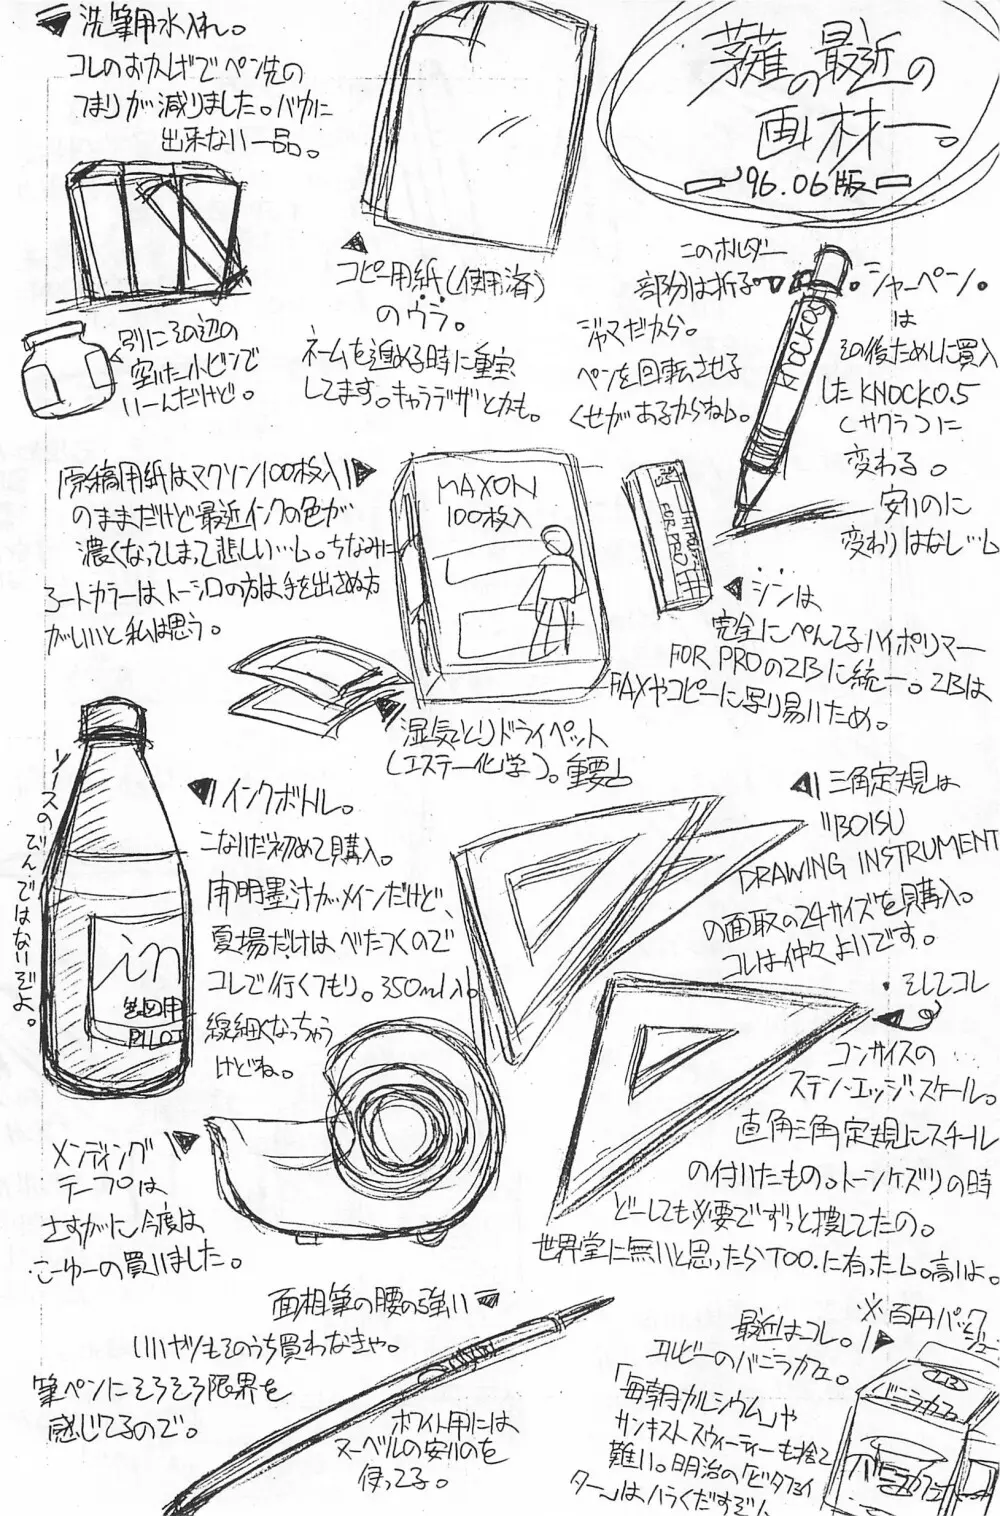 茅薙の最近の
画材ー。
'96.06版
洗筆用水入れ。
コレのおかげでペン先の
つまりが減りました。バカに
出来ない一品。
別にその辺の
空いた小ビンで
いーんだけど。
コピー用紙(使用済)
のウラ。
ネームを進める時に重宝
してます。キャラデザとかも。
このホルダー
部分は折る。
ジャマだから。
ペンを回転させる
くせがあるからねっ。
シャーペン。
は
その後ためしに買入
したKNOCK0.5
(サクラ)に
変わる。
安いのに
変わりはなし…
KNOCK05
原稿用紙はマクソン100枚入り
のままだけど最近インクの色が
濃くなってしまって悲しい…。ちなみに
アートカラーは、トーシロの方は手を出さぬ方
がいいと私は思う。
MAXON
100枚入
FOR PRO
ジンは
完全にぺんてるハイポリマー
FOR PROの2Bに統一。2Bは
FAXやコピーに写り易いため。
湿気とりドライペット
(エステー化学)。重要
ソースのびんではないぞよ。
in
製図用
PILOT
インクボトル。
こないだ初めて購入。
開明墨汁がメインだけど、
夏場だけはべたつくので
コレで行くつもり。350ml入。
線細くなっちゃう
けどね。
三角定規は
"BOISU
DRAWING INSTRUMENT
の面取の24サイズを購入。
コレは仲々よいです。
・そしてコレ
コンサイスの
ステン・エッジ・スケール。
直角三角定規にスチール
の付いたもの。トーンケズリの時
どーしても必要でずっと捜してたの。
世界堂に無いと思ったらTOO.に有った。高いよ。
メンディング
テープは
さすがに今度は
こーゆーの買いました。
面相筆の腰の強い
いいヤツもそのうち買わなきゃ。
筆ペンにそろそろ限界を
感じてるので。
ホワイト用には
ヌーベルの安いのを
使ってる。
※百円パックジュー
最近はコレ。
エルビーのバニラカフェ。
「毎朝カルシウム」や
サンキスト スウィーティーも捨て
難い。明治の「ビタファイ
ター」はハラくだすぞ
LB
バニラカフェ
バニラカフェ